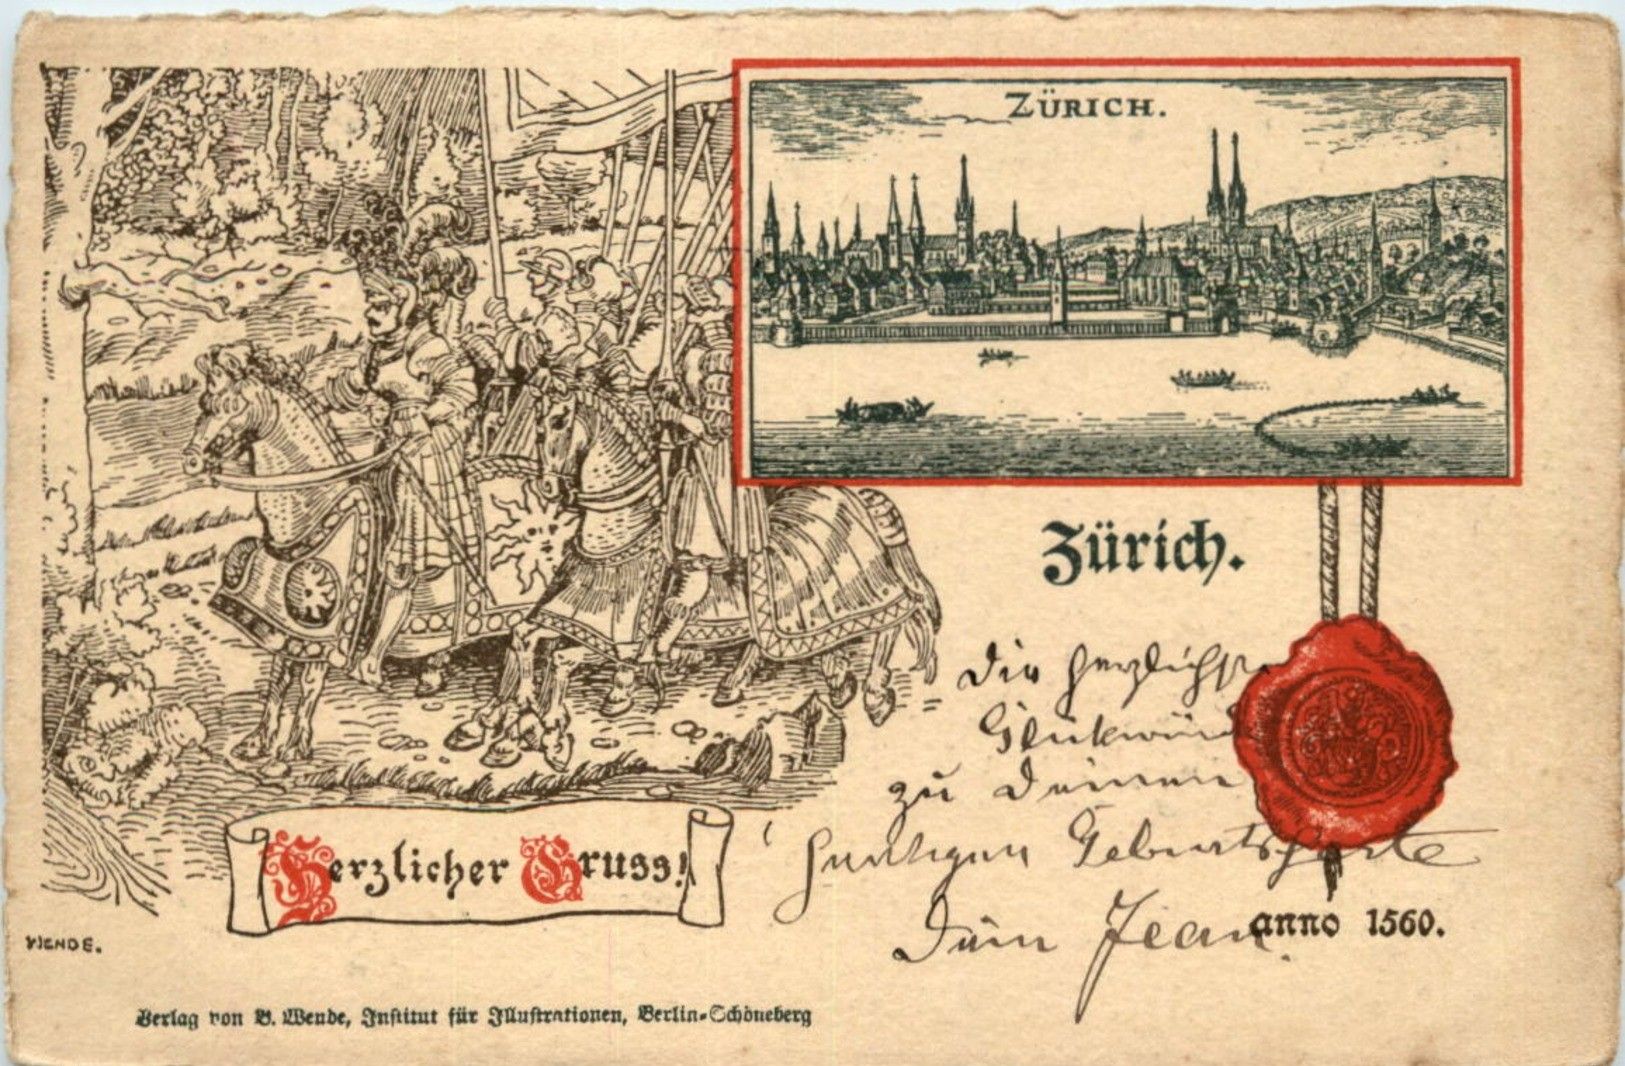 ZÜRICH.
Zürich.
Die herzlichste
Glückwünsche
zu Deinem
heutigen Geburtsfeste
Dein Jean
anno 1560.
Herzlicher Gruss!
WENDE.
Verlag von B. Wende, Institut für Illustrationen, Berlin-Schöneberg